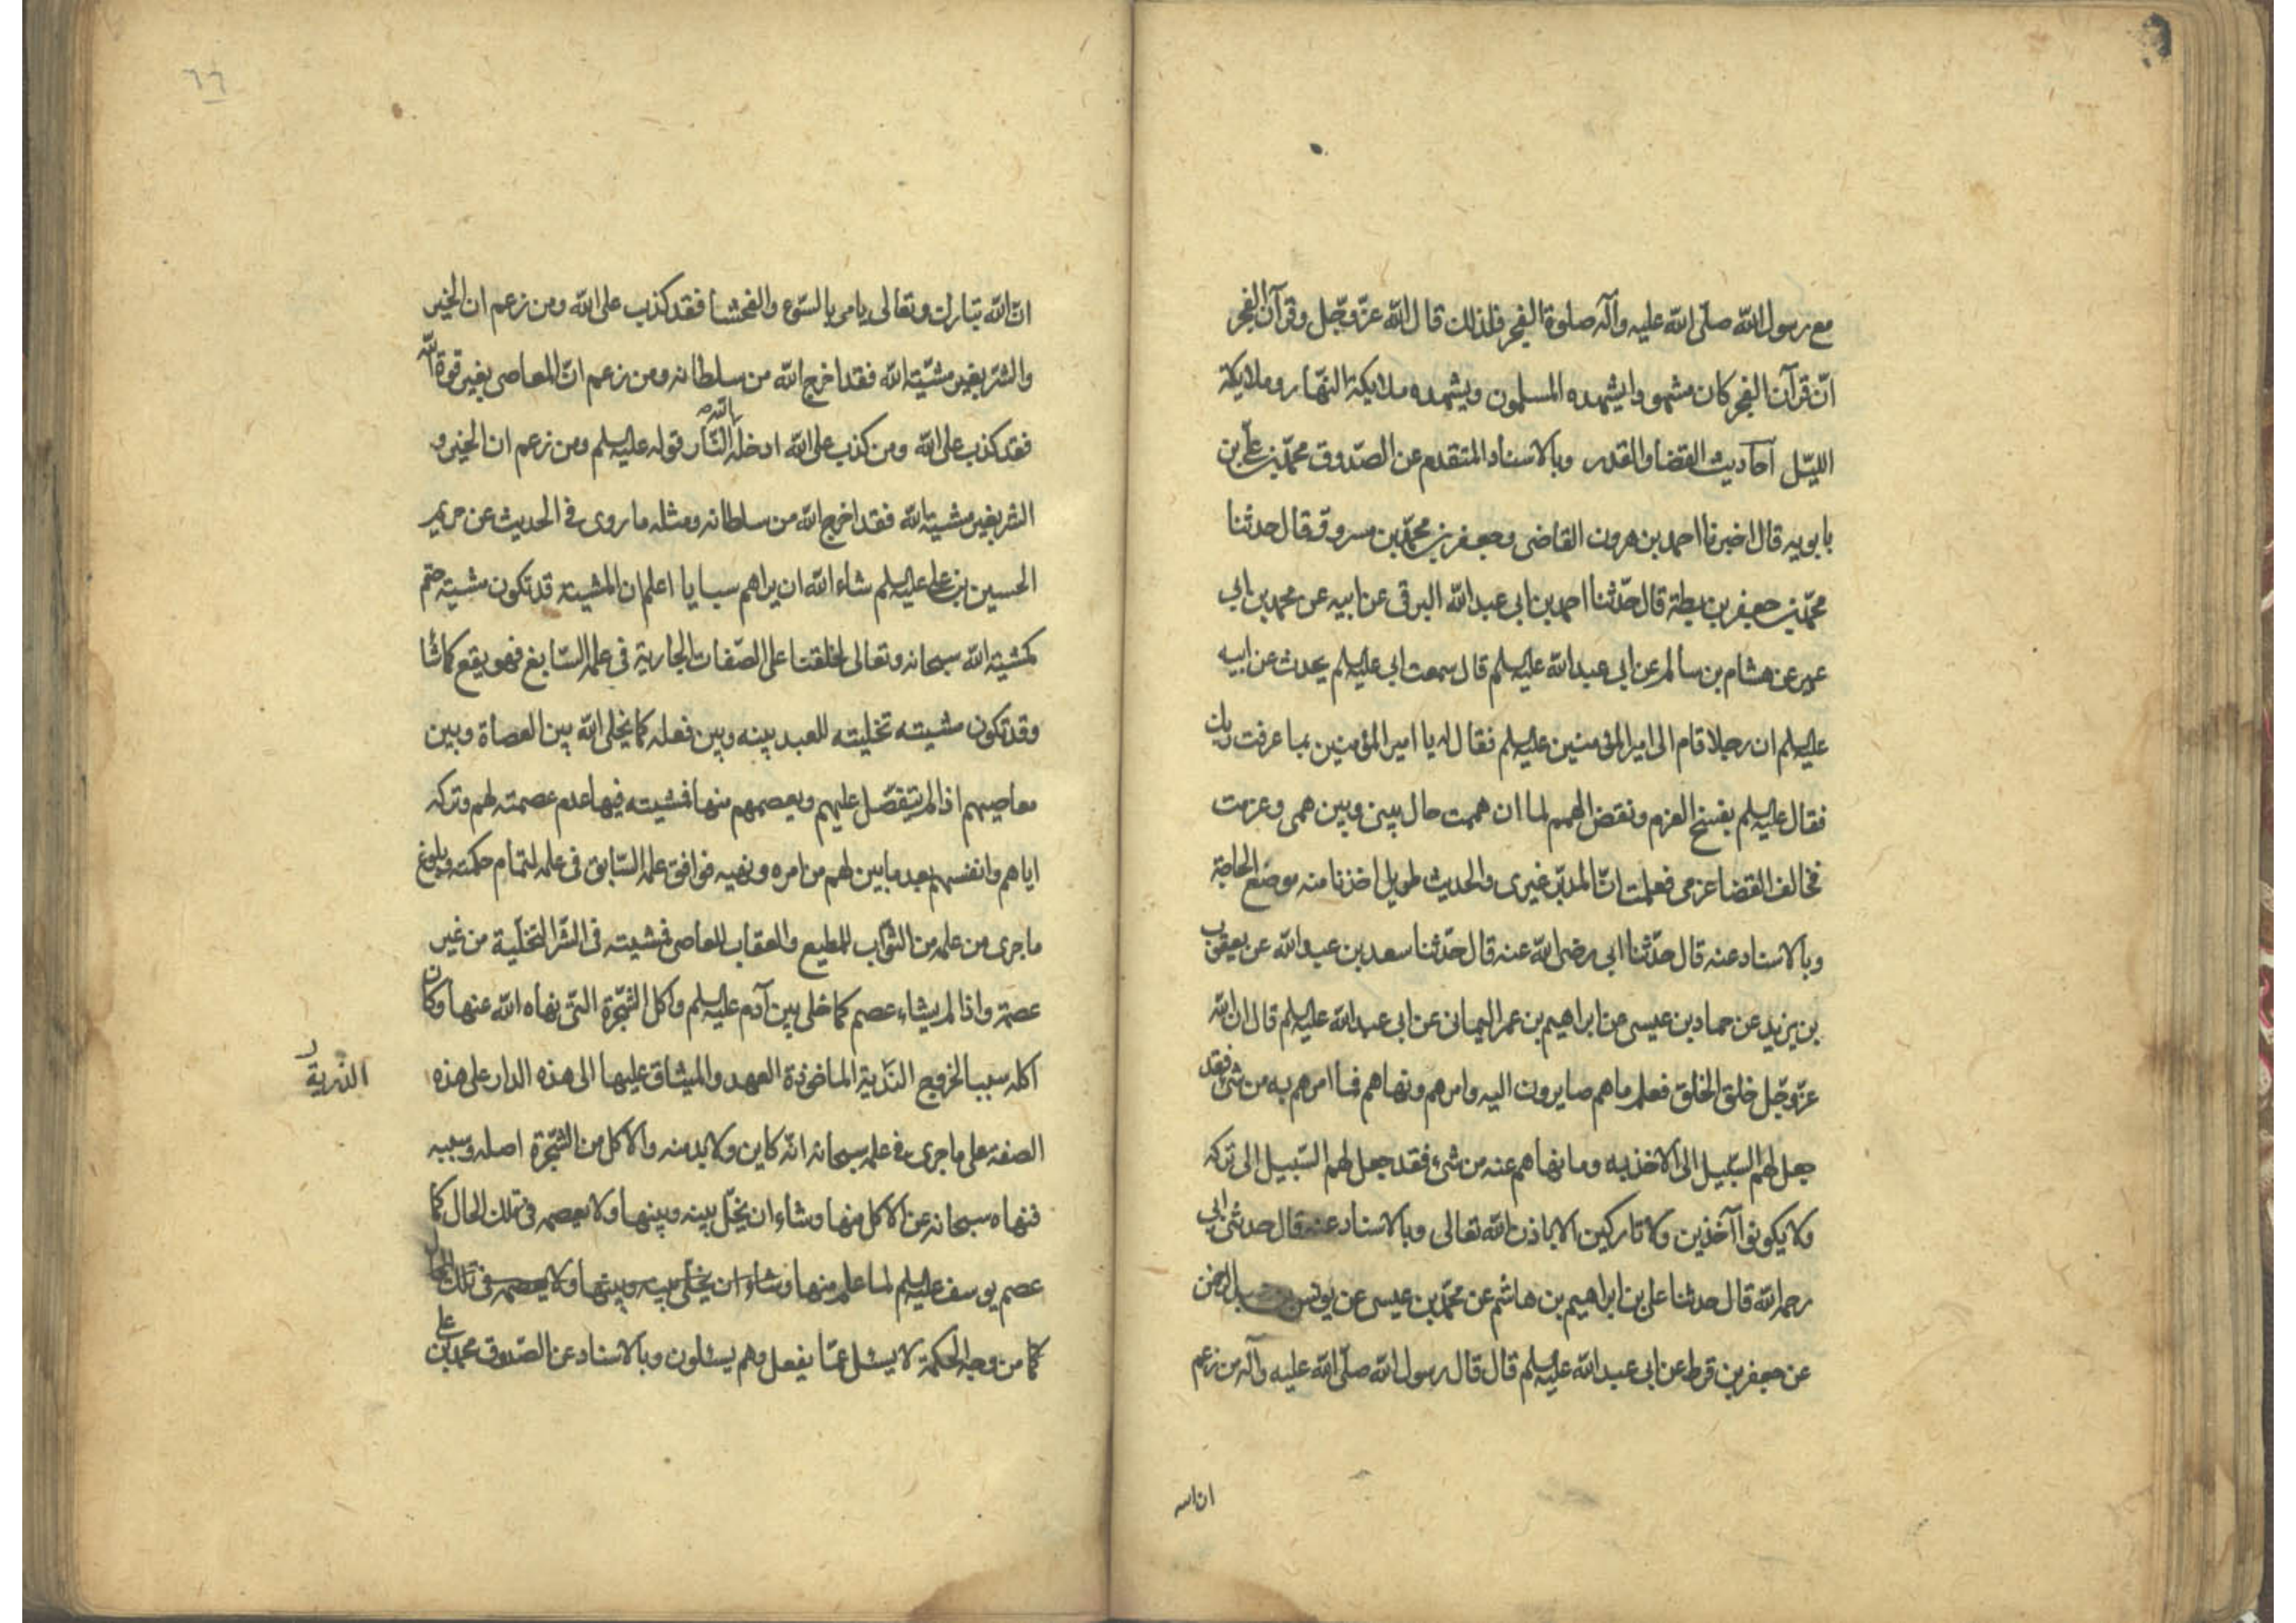 مع رسول الله صلّى الله عليه وآله صلوة الفجر فلذلك قال الله عزّ وجّل وقرآن الفجر
انّ قرآن الفجر كان مشهودا يشهده المسلمون ويشهده ملايكة النهّار وملايكة
الليّل احاديث القضا والقدر وبالاسناد المتقدم عن الصّدوق محمّد بن علّي بن
بابويه قال اخبرنا احمد بن هرون القاضى وجعفر بن محمّد بن مسروق قال حدثنا
محمّد بن جعفر بن بطة قال حدّثنا احمد بن ابى عبد الله البرقى عن ابيه عن محمد بن ابي
عمير عن هشام بن سالم عن ابى عبد الله عليه السلم قال سمعت ابى عليه السلم يحدث عن ابيه
عليه السلم ان رجلا قام الى امير المؤمنين عليه السلم فقال له يا امير المؤمنين بما عرفت ربك
فقال عليه السلم بفسخ العزم ونقض الهمم لما ان هممت حال بينى وبين همى وعزمت
فخالف القضا عزمى فعلمت انّ المدبّر غيرى والحديث طويل اخذنا منه موضع الحاجة
وبالاسناد عنه قال حدّثنا ابى رضى الله عنه قال حدّثنا سعد بن عبد الله عن يعقوب
بن يزيد عن حماد بن عيسى عن ابراهيم بن عمر اليمانى عن ابى عبد الله عليه السلم قال ان الله
عزّ وجّل خلق الخلق فعلم ما هم صايرون اليه وامرهم ونهاهم فما امرهم به من شئ فقد
جعل لهم السّبيل الى الاخذ به وما نهاهم عنه من شئ فقد جعل لهم السّبيل الى تركه
ولا يكونوا آخذين ولا تاركين الا باذن الله تعالى وبالاسناد عنه قال حدثنى ابي
رحمه الله قال حدثنا على بن ابراهيم بن هاشم عن محمّد بن عيسى عن يونس بن عبد الرحمن
عن جعفر بن قرط عن ابى عبد الله عليه السلم قال قال رسول الله صلّى الله عليه وآله من زعم
ان الله
٦٦
انّ الله تبارك وتعالى يامر بالسّوء والفحشا فقد كذب على الله ومن زعم ان الخير
والشرّ بغير مشيّته الله فقد اخرج الله من سلطانه ومن زعم انّ المعاصى بغير قوة الله
فقد كذب على الله ومن كذب على الله ادخله الله النّار قوله عليه السلم ومن زعم ان الخير و
الشر بغير مشيته الله فقد اخرج الله من سلطانه ومثله ما روى فى الحديث عن حريم
الحسين بن على عليه السلم شاء الله ان يراهم سبايا اعلم ان المشيته قد تكون مشيته حتم
كمشيته الله سبحانه وتعالى لخلقنا على الصّفات الجارية فى علمه السّابغ فهو يقع كما شا
وقد تكون مشيته تخليته للعبد بينه وبين فعله كما يخلى الله بين العصاة وبين
معاصيهم اذا لم يتفضّل عليهم ويعصمهم منها فمشيته فيها عدم عصمته لهم وتركه
اياهم وانفسهم بعد ما بين لهم من امره ونهيه فوافق علمه السّابق فى علمه لتمام حكمته وبلوغ
ما جرى من علمه من الثّواب للمطيع والعقاب للعاصى فمشيته فى الشّر التخلّية من غير
عصمة واذا لم يشاء عصم كما خلى بين آدم عليه السلم واكل الشّجرة التى نهاه الله عنها وكان
اكله سببا لخروج الذّرية الماخوذة العهد والميثاق عليها الى هذه الدار على هذه
الذرية
الصفه على ما جرى فى علمه سبحانه انّه كاين ولا بد منه والاكل من الشّجرة اصله وسببه
فنهاه سبحانه عن الاكل منها وشاء ان يخلّى بينه وبينها ولا يعصمه فى تلك الحال كما
عصم يوسف عليه السلم لما علم منها وشاء ان يخلّى بينه وبينها ولا يعصمه فى تلك الحال
كما من وجه الحكمة لا يسئل عمّا يفعل وهم يسئلون وبالاسناد عن الصّدوق محمد بن علي